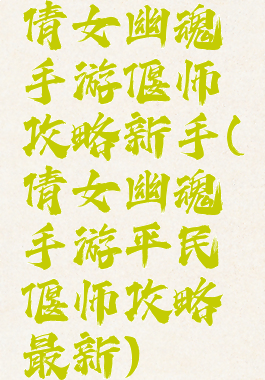 倩女幽魂
手游偃师
攻略新手(
倩女幽魂
手游平民
偃师攻略
最新)